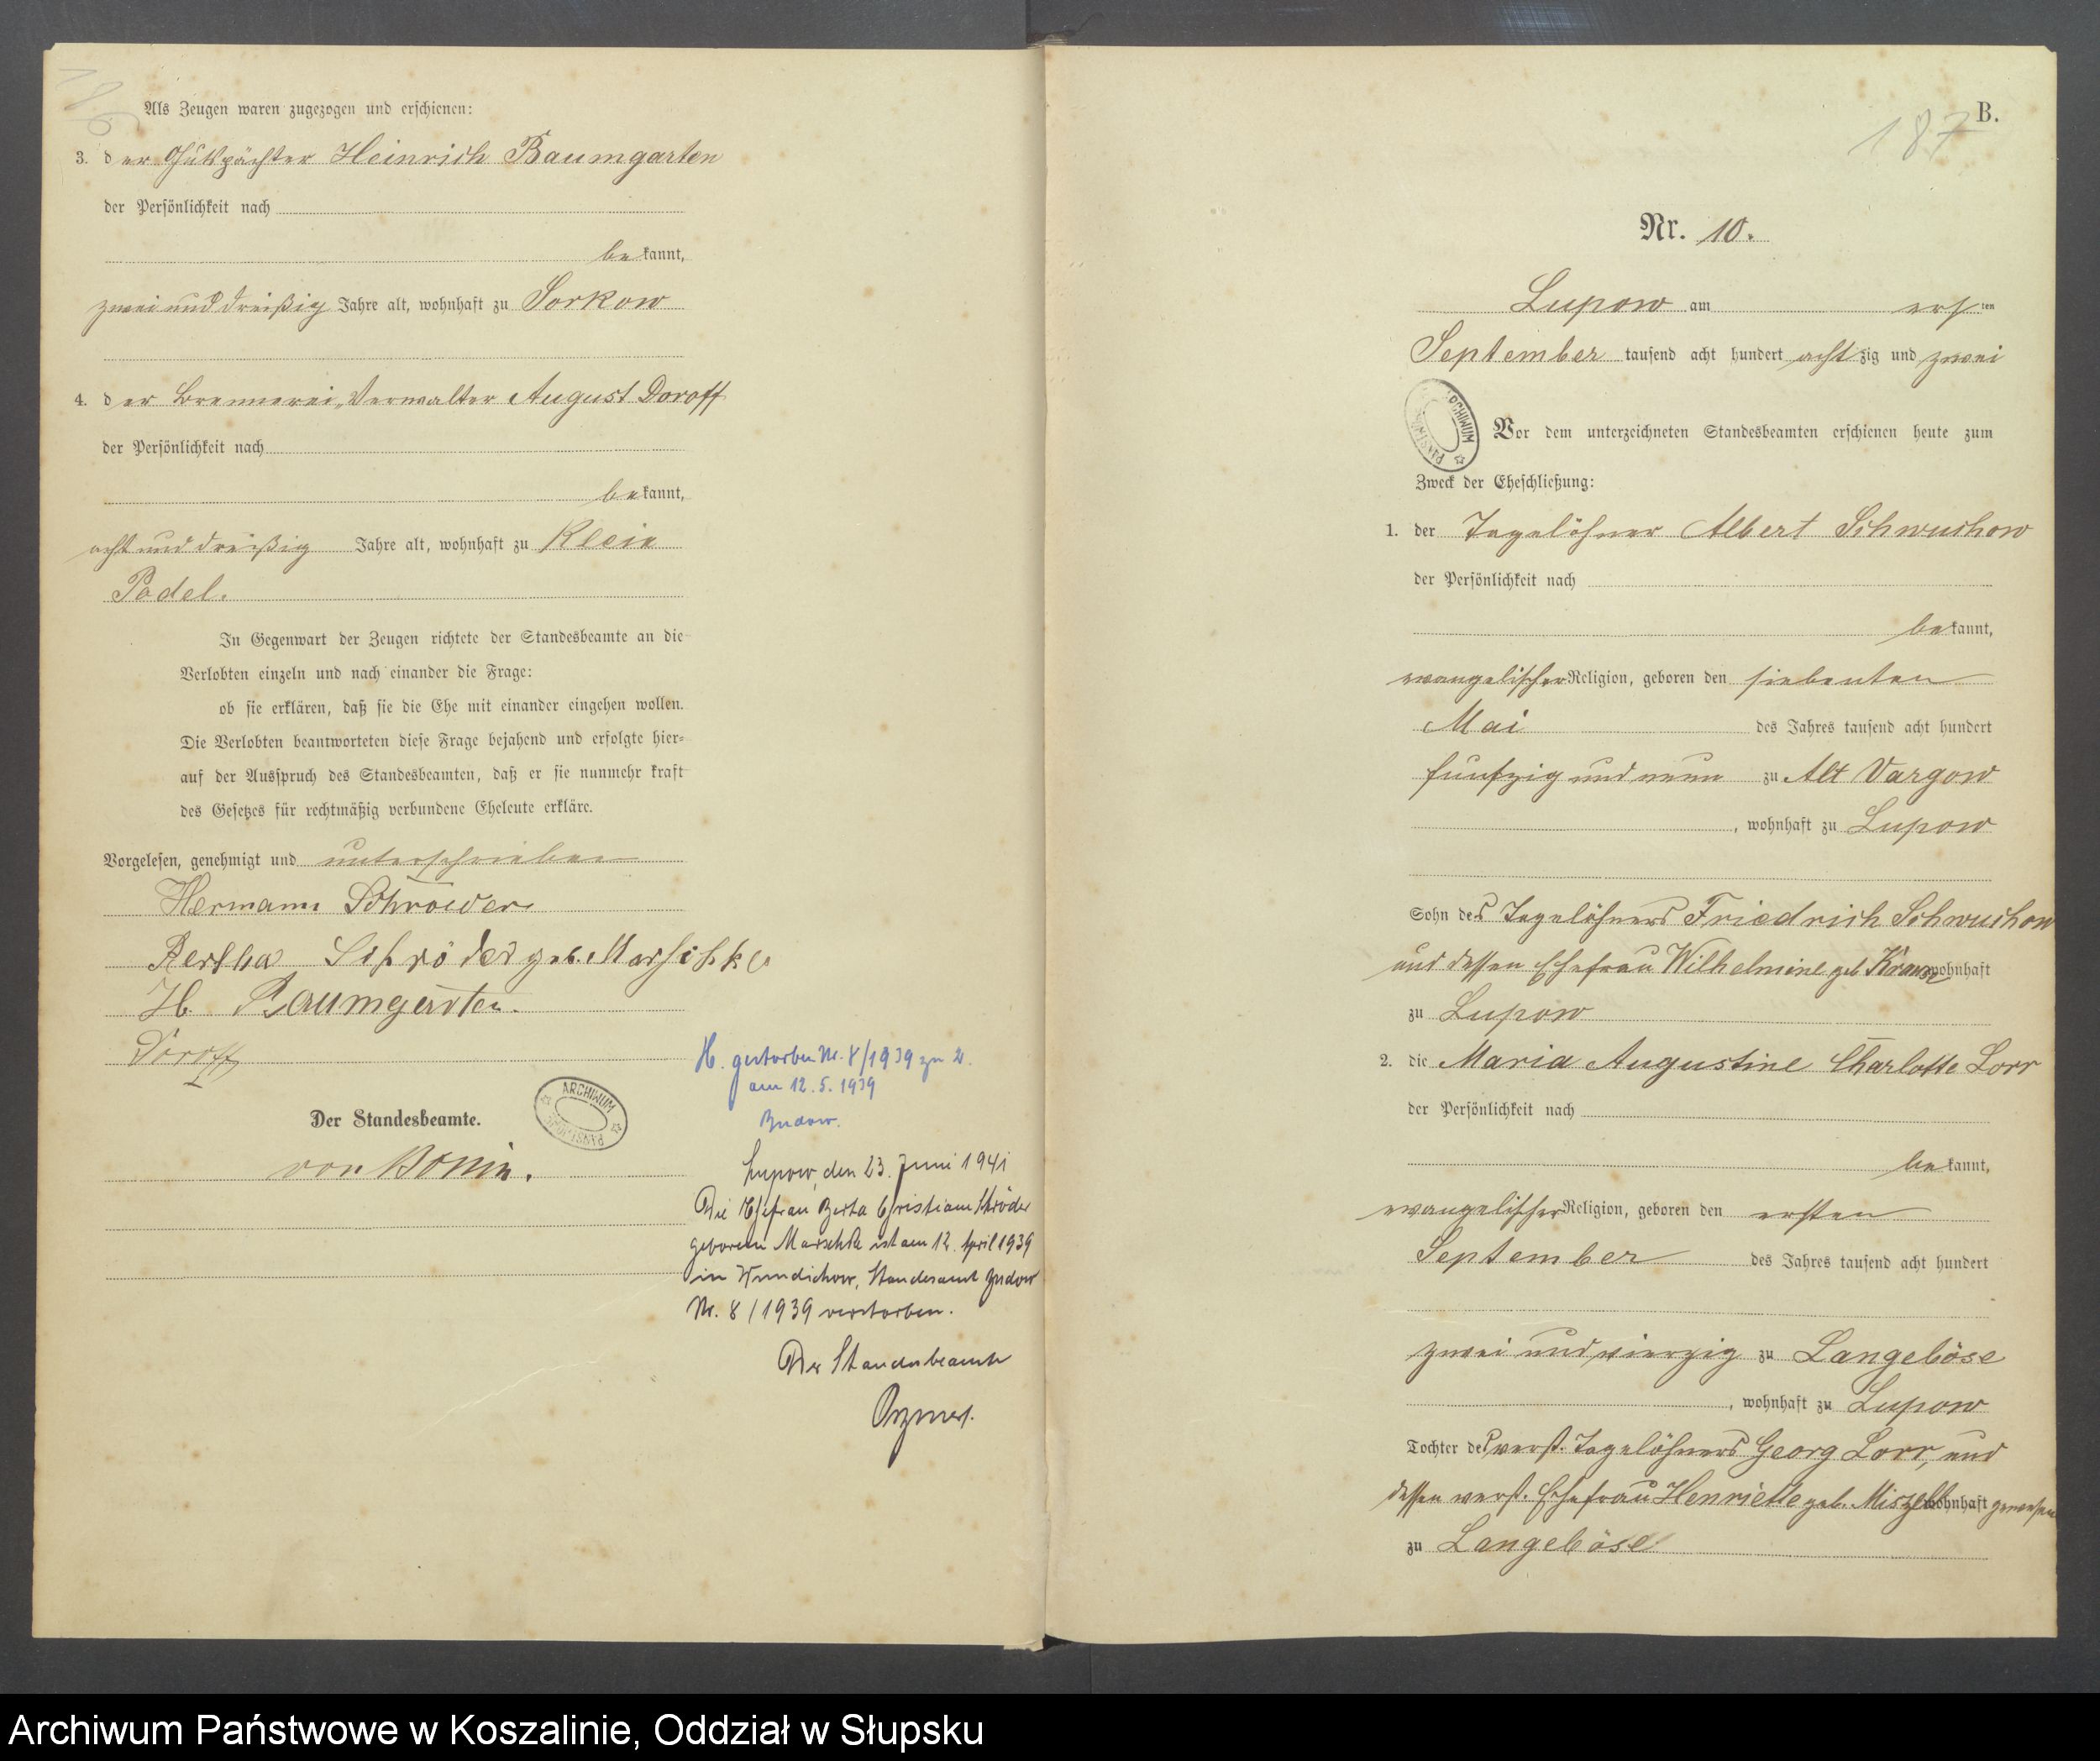 Als Zeugen waren zugezogen und erschienen:
3. der Gutspächter Heinrich Baumgarten
der Persönlichkeit nach
bekannt,
zwei und dreißig Jahre alt, wohnhaft zu Sorkow
4. der Brennerei-Verwalter August Doroff
der Persönlichkeit nach
bekannt,
acht und dreißig Jahre alt, wohnhaft zu Klein
Podel.
In Gegenwart der Zeugen richtete der Standesbeamte an die
Verlobten einzeln und nach einander die Frage:
ob sie erklären, daß sie die Ehe mit einander eingehen wollen.
Die Verlobten beantworteten diese Frage bejahend und erfolgte hier-
auf der Ausspruch des Standesbeamten, daß er sie nunmehr kraft
des Gesetzes für rechtmäßig verbundene Eheleute erkläre.
Vorgelesen, genehmigt und unterschrieben
Hermann Schroeder
Bertha Schröder geb. Marschke
H. Baumgarten.
Doroff
Der Standesbeamte.
von Bonin.
ARCHIWUM
H. gestorben Nr. 8/1939 zu 2.
am 12. 5. 1939
Budow.
Lupow, den 23. Juni 1941
Die Ehefrau Berta Christiane Schröder
geborene Marschke ist am 12. April 1939
in Wundichow, Standesamt Budow
Nr. 8/1939 verstorben.
Der Standesbeamte
B.
187
Nr. 10.
Lupow am ersten
September tausend acht hundert achtzig und zwei
ARCHIWUM
Vor dem unterzeichneten Standesbeamten erschienen heute zum
Zweck der Eheschließung:
1. der Tagelöhner Albert Schwuchow
der Persönlichkeit nach
bekannt,
evangelischer Religion, geboren den siebenten
Mai des Jahres tausend acht hundert
fünfzig und neun zu Alt Vargow
, wohnhaft zu Lupow
Sohn des Tagelöhners Friedrich Schwuchow
und dessen Ehefrau Wilhelmine geb. wohnhaft
zu Lupow
2. die Maria Augustine Charlotte Lorr
der Persönlichkeit nach
bekannt,
evangelischer Religion, geboren den ersten
September des Jahres tausend acht hundert
zwei und vierzig zu Langeböse
, wohnhaft zu Lupow
Tochter des verst. Tagelöhners Georg Lorr, und
dessen verst. Ehefrau Henriette geb. wohnhaft gewesen
zu Langeböse
Archiwum Państwowe w Koszalinie, Oddział w Słupsku